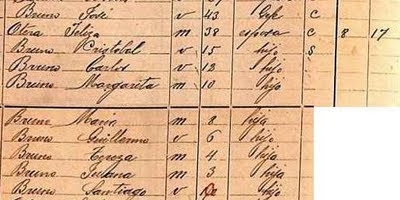 Bruno José v 43 Gefe C
Otera Feliza m 38 esposa C 8 17
Bruno Cristobal v 15 hijo S
Bruno Carlos v 12 hijo
Bruno Margarita m 10 hijo
Bruno Maria m 8 hija
Bruno Guillermo v 6 hijo
Bruno Tereza m 4 hija
Bruno Juliana m 3 hija
Bruno Santiago v hijo